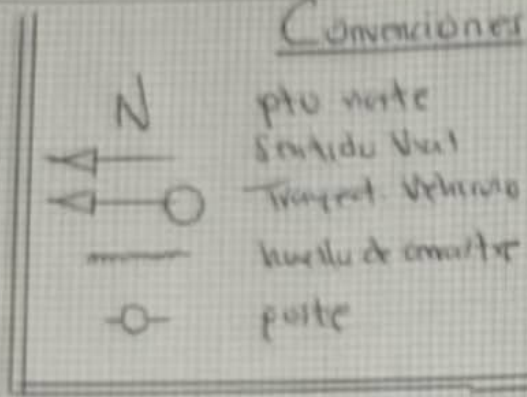 Convenciones
N pto norte
Sentido Vial
Trayect. Vehiculo
huella de arrastre
poste